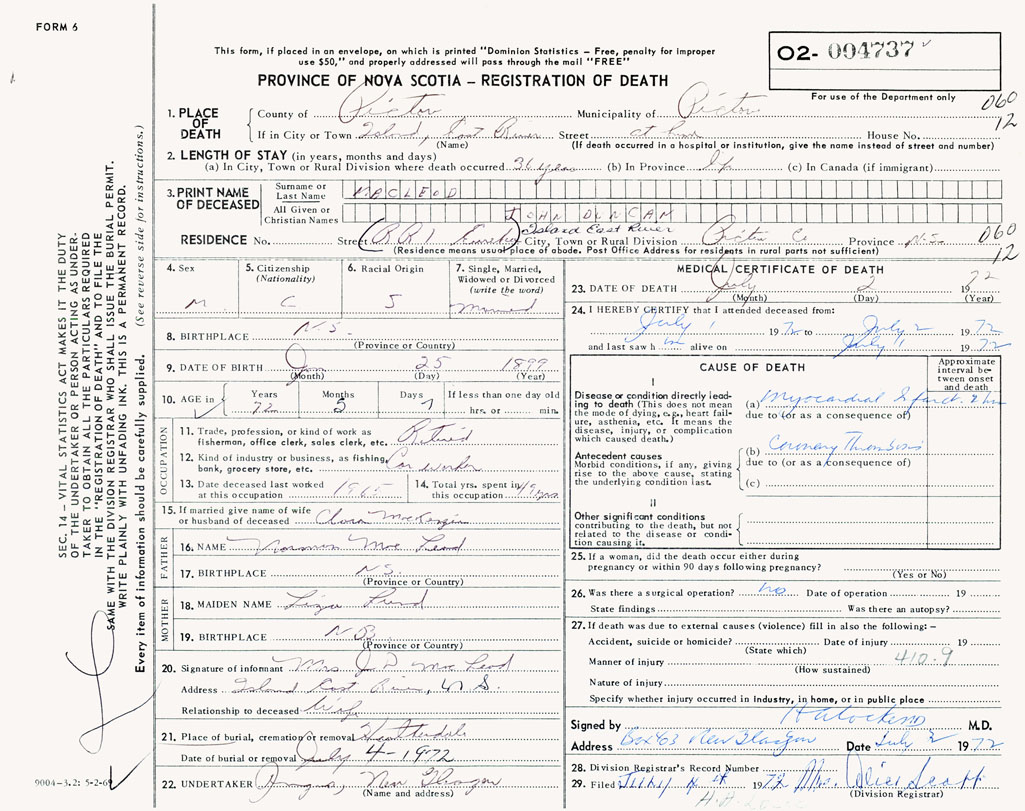 FORM 6
This form, if placed in an envelope, on which is printed "Dominion Statistics – Free, penalty for improper
use $50," and properly addressed will pass through the mail "FREE"
PROVINCE OF NOVA SCOTIA – REGISTRATION OF DEATH
O2- 004737
For use of the Department only
060
12
1. PLACE OF DEATH
County of Pictou Municipality of Pictou
If in City or Town Island, East River Street House No.
(Name) (If death occurred in a hospital or institution, give the name instead of street and number)
2. LENGTH OF STAY (in years, months and days)
(a) In City, Town or Rural Division where death occurred 36 years (b) In Province (c) In Canada (if immigrant)
3. PRINT NAME OF DECEASED
Surname or Last Name MACLEOD
All Given or Christian Names JOHN DUNCAN
Island East River
RESIDENCE No. Street R.R.1 Eureka City, Town or Rural Division Pictou Co Province N.S. 060
(Residence means usual place of abode. Post Office Address for residents in rural parts not sufficient) 12
4. Sex M
5. Citizenship (Nationality) C
6. Racial Origin 5
7. Single, Married, Widowed or Divorced (write the word) Married
8. BIRTHPLACE N.S.
(Province or Country)
9. DATE OF BIRTH Jan 25 1899
(Month) (Day) (Year)
10. AGE in Years 72 Months 5 Days 7 If less than one day old hrs. or min.
OCCUPATION
11. Trade, profession, or kind of work as fisherman, office clerk, sales clerk, etc. Retired
12. Kind of industry or business, as fishing, bank, grocery store, etc. Car worker
13. Date deceased last worked at this occupation 1965
14. Total yrs. spent in this occupation 49 yrs
15. If married give name of wife or husband of deceased Clara MacKenzie
FATHER
16. NAME Norman MacLeod
17. BIRTHPLACE N.S.
(Province or Country)
MOTHER
18. MAIDEN NAME Liza
19. BIRTHPLACE N B
(Province or Country)
20. Signature of informant Mrs J. D. MacLeod
Address Island East River, N.S.
Relationship to deceased Wife
21. Place of burial, cremation or removal Heatherdale
Date of burial or removal July 4-1972
22. UNDERTAKER New Glasgow
(Name and address)
MEDICAL CERTIFICATE OF DEATH
23. DATE OF DEATH July 2 1972
(Month) (Day) (Year)
24. I HEREBY CERTIFY that I attended deceased from:
July 1 1972 to July 2 1972
and last saw him alive on July 1 1972
CAUSE OF DEATH
Approximate interval between onset and death
I
Disease or condition directly leading to death (This does not mean the mode of dying, e.g., heart failure, asthenia, etc. It means the disease, injury, or complication which caused death.)
(a) Myocardial Infarct. 2 hrs
due to (or as a consequence of)
Antecedent causes
Morbid conditions, if any, giving rise to the above cause, stating the underlying condition last.
(b) Coronary Thrombosis
due to (or as a consequence of)
(c)
II
Other significant conditions contributing to the death, but not related to the disease or condition causing it.
25. If a woman, did the death occur either during pregnancy or within 90 days following pregnancy?
(Yes or No)
26. Was there a surgical operation? no Date of operation 19
State findings Was there an autopsy?
27. If death was due to external causes (violence) fill in also the following: –
Accident, suicide or homicide? Date of injury 19
(State which)
Manner of injury 410.9
(How sustained)
Nature of injury
Specify whether injury occurred in industry, in home, or in public place
Signed by M.D.
Address Box 463 New Glasgow Date July 2 1972
28. Division Registrar's Record Number
29. Filed July 1972 Mrs. Alice Scott
(Division Registrar)
SEC. 14 – VITAL STATISTICS ACT MAKES IT THE DUTY
OF THE UNDERTAKER OR PERSON ACTING AS UNDER-
TAKER TO OBTAIN ALL THE PARTICULARS REQUIRED
IN THE "REGISTRATION OF DEATH" AND TO FILE THE
SAME WITH THE DIVISION REGISTRAR WHO SHALL ISSUE THE BURIAL PERMIT.
WRITE PLAINLY WITH UNFADING INK. THIS IS A PERMANENT RECORD.
Every item of information should be carefully supplied. (See reverse side for instructions.)
9004-3.2: 5-2-69